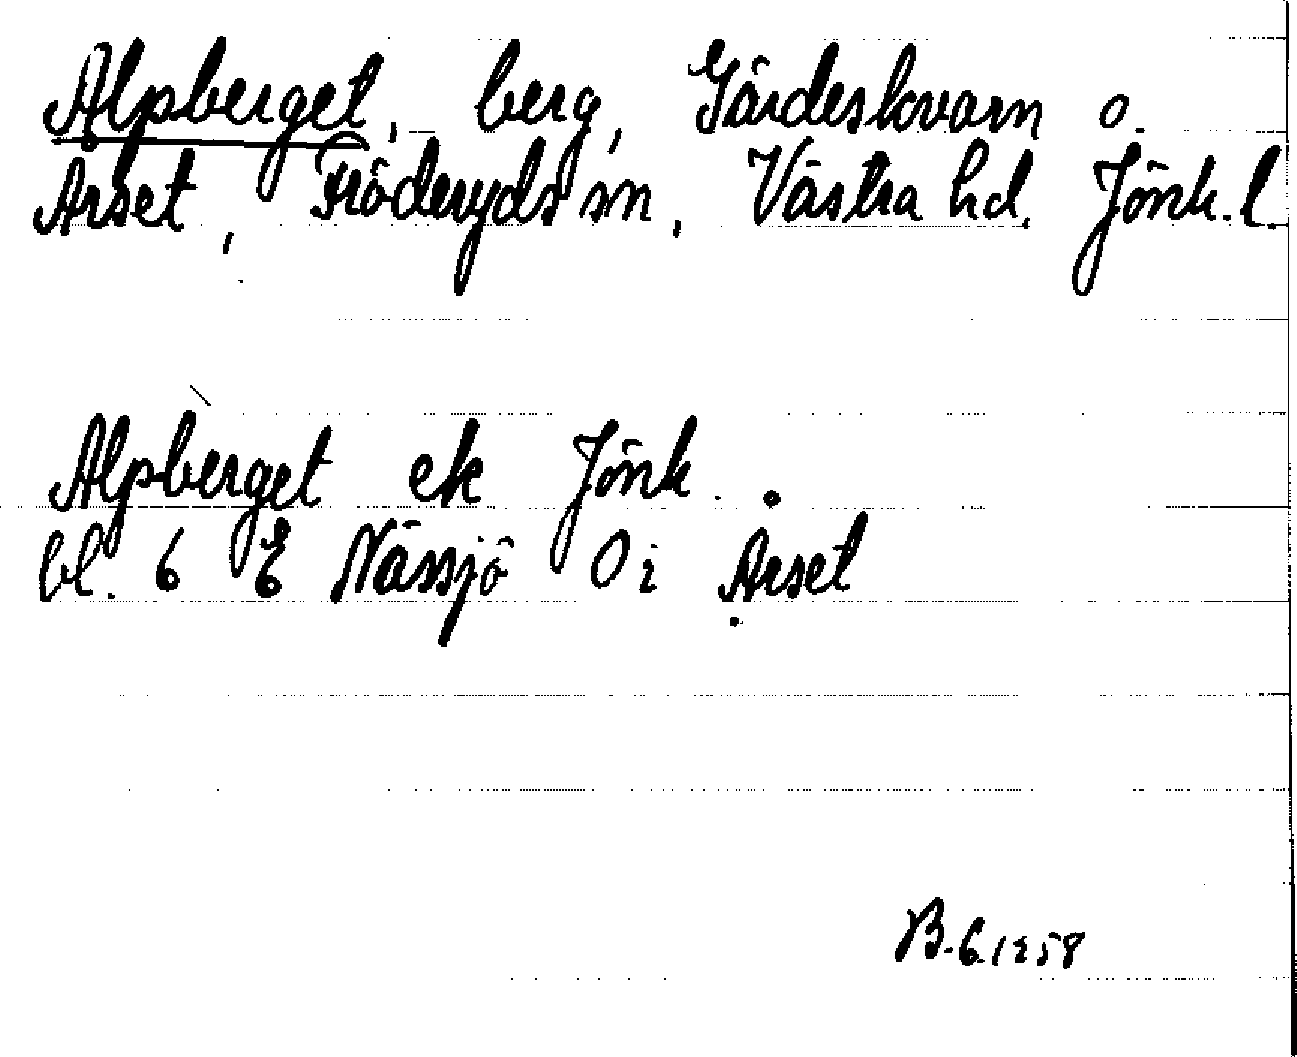 Alpberget, berg, Gärdeshovarn o.
Årset, Fröderyds sn, Västra hd. Jönk. l.
Alpberget ek Jönk.
bl. 6 E Nässjö Oi Arset
B. 6.12 58